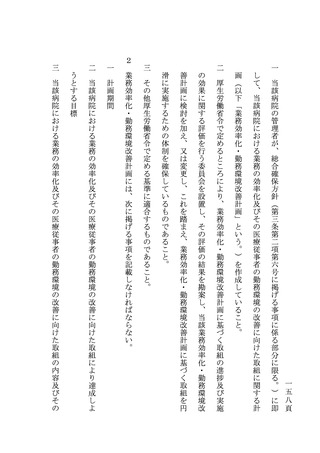 一五八頁
一　当該病院の管理者が、総合確保方針（第三条第二項第六号に掲げる事項に係る部分に限る。）に即
して、当該病院における業務の効率化及びその医療従事者の勤務環境の改善に向けた取組に関する計
画（以下「業務効率化・勤務環境改善計画」という。）を作成していること。
二　厚生労働省令で定めるところにより、業務効率化・勤務環境改善計画に基づく取組の進捗及び実施
の効果に関する評価を行う委員会を設置し、その評価の結果を勘案し、当該業務効率化・勤務環境改
善計画に検討を加え、又は変更し、これを踏まえ、業務効率化・勤務環境改善計画に基づく取組を円
滑に実施するための体制を確保しているものであること。
三　その他厚生労働省令で定める基準に適合するものであること。
２　業務効率化・勤務環境改善計画には、次に掲げる事項を記載しなければならない。
一　計画期間
二　当該病院における業務の効率化及びその医療従事者の勤務環境の改善に向けた取組により達成しよ
うとする目標
三　当該病院における業務の効率化及びその医療従事者の勤務環境の改善に向けた取組の内容及びその